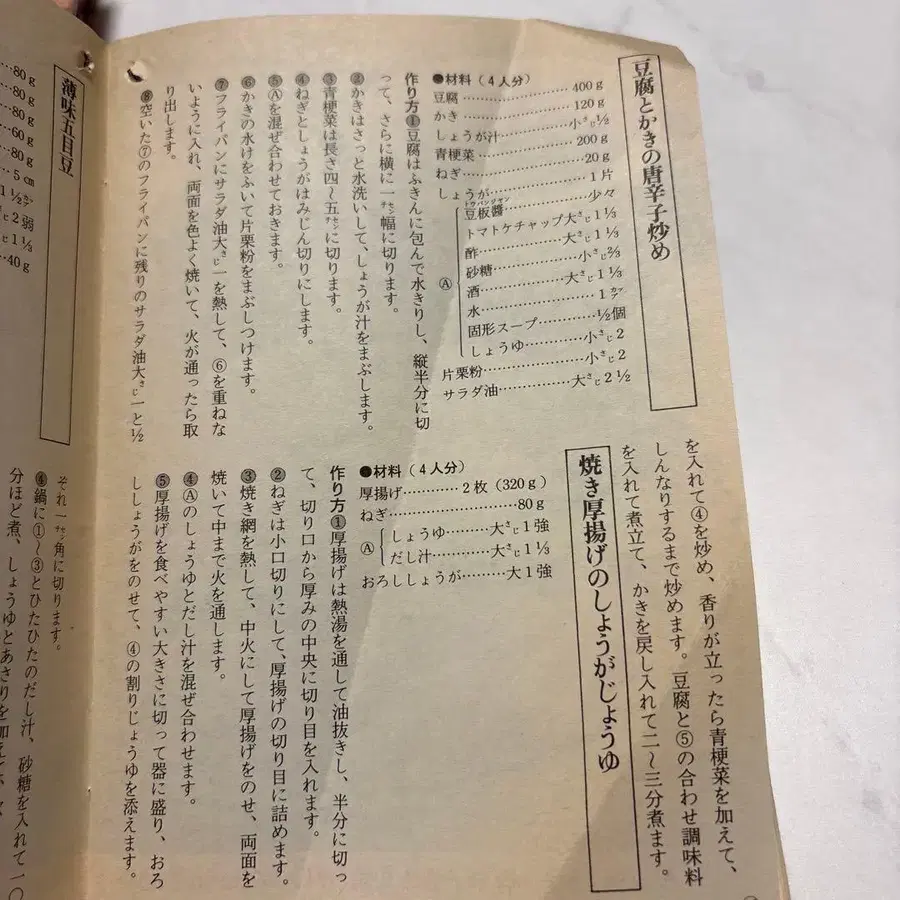 豆腐とかきの唐辛子炒め
●材料(4人分)
豆腐……………………400g
かき……………………120g
しょうが汁…………小さじ½
青梗菜…………………200g
ねぎ……………………20g
しょうが………………1片
Ⓐ
豆板醬(トウバンジャン)…………少々
トマトケチャップ大さじ1⅓
酢……………大さじ1⅓
砂糖…………小さじ⅔
酒……………大さじ1⅓
水……………1カップ
固形スープ………½個
しょうゆ………小さじ2
片栗粉…………小さじ2
サラダ油………大さじ2½
作り方①豆腐はふきんに包んで水きりし、縦半分に切
って、さらに横に一センチ幅に切ります。
②かきはさっと水洗いして、しょうが汁をまぶします。
③青梗菜は長さ四〜五センチに切ります。
④ねぎとしょうがはみじん切りにします。
⑤Ⓐを混ぜ合わせておきます。
⑥かきの水けをふいて片栗粉をまぶしつけます。
⑦フライパンにサラダ油大さじ一を熱して、⑥を重ねな
いように入れ、両面を色よく焼いて、火が通ったら取
り出します。
⑧空いた⑦のフライパンに残りのサラダ油大さじ一と½
を入れて④を炒め、香りが立ったら青梗菜を加えて、
しんなりするまで炒めます。豆腐と⑤の合わせ調味料
を入れて煮立て、かきを戻し入れて二〜三分煮ます。
焼き厚揚げのしょうがじょうゆ
●材料(4人分)
厚揚げ…………2枚(320g)
ねぎ……………………80g
Ⓐ
しょうゆ………大さじ1強
だし汁…………大さじ1⅓
おろししょうが………大1強
作り方①厚揚げは熱湯を通して油抜きし、半分に切っ
て、切り口から厚みの中央に切り目を入れます。
②ねぎは小口切りにして、厚揚げの切り目に詰めます。
③焼き網を熱して、中火にして厚揚げをのせ、両面を
焼いて中まで火を通します。
④Ⓐのしょうゆとだし汁を混ぜ合わせます。
⑤厚揚げを食べやすい大きさに切って器に盛り、おろ
ししょうがをのせて、④の割りじょうゆを添えます。
薄味五目豆
…80g
…80g
…80g
…60g
…80g
…5㎝
1½カップ
2弱
1⅓
…40g
それ一センチ角に切ります。
④鍋に①〜③とひたひたのだし汁、砂糖を入れて一〇
分ほど煮、しょうゆとあさりを加え